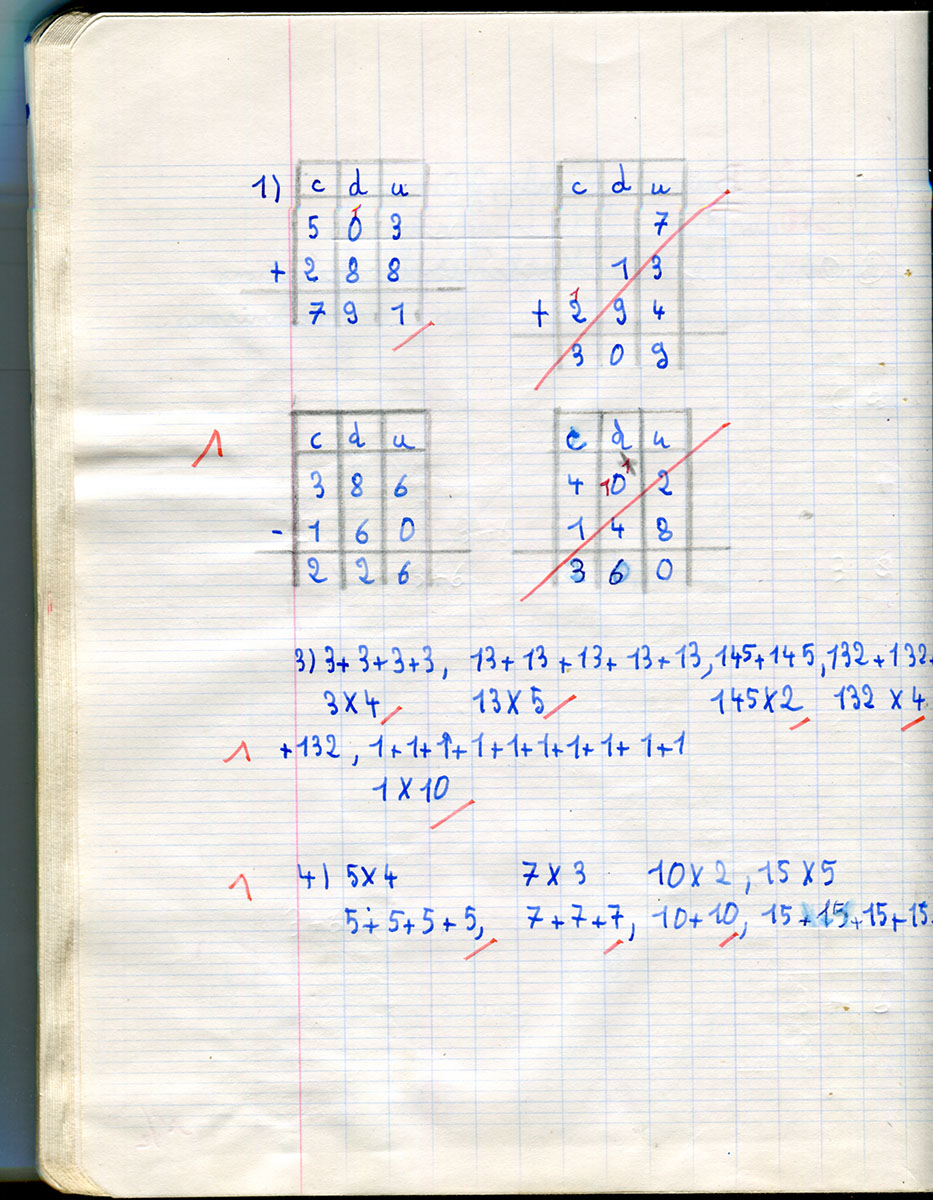 1) c d u c d u
1
5 0 3 7
+ 2 8 8 1 3
1
7 9 1 + 2 9 4
3 0 9
1 c d u c d u
1
3 8 6 4 10 2
- 1 6 0 1 4 8
2 2 6 3 6 0
3) 3+3+3+3, 13+13+13+13+13, 145+145, 132+132+
3×4 13×5 145×2 132×4
1 +132, 1+1+1+1+1+1+1+1+1+1
1×10
1 4) 5×4 7×3 10×2, 15×5
5+5+5+5, 7+7+7, 10+10, 15+15+15+15